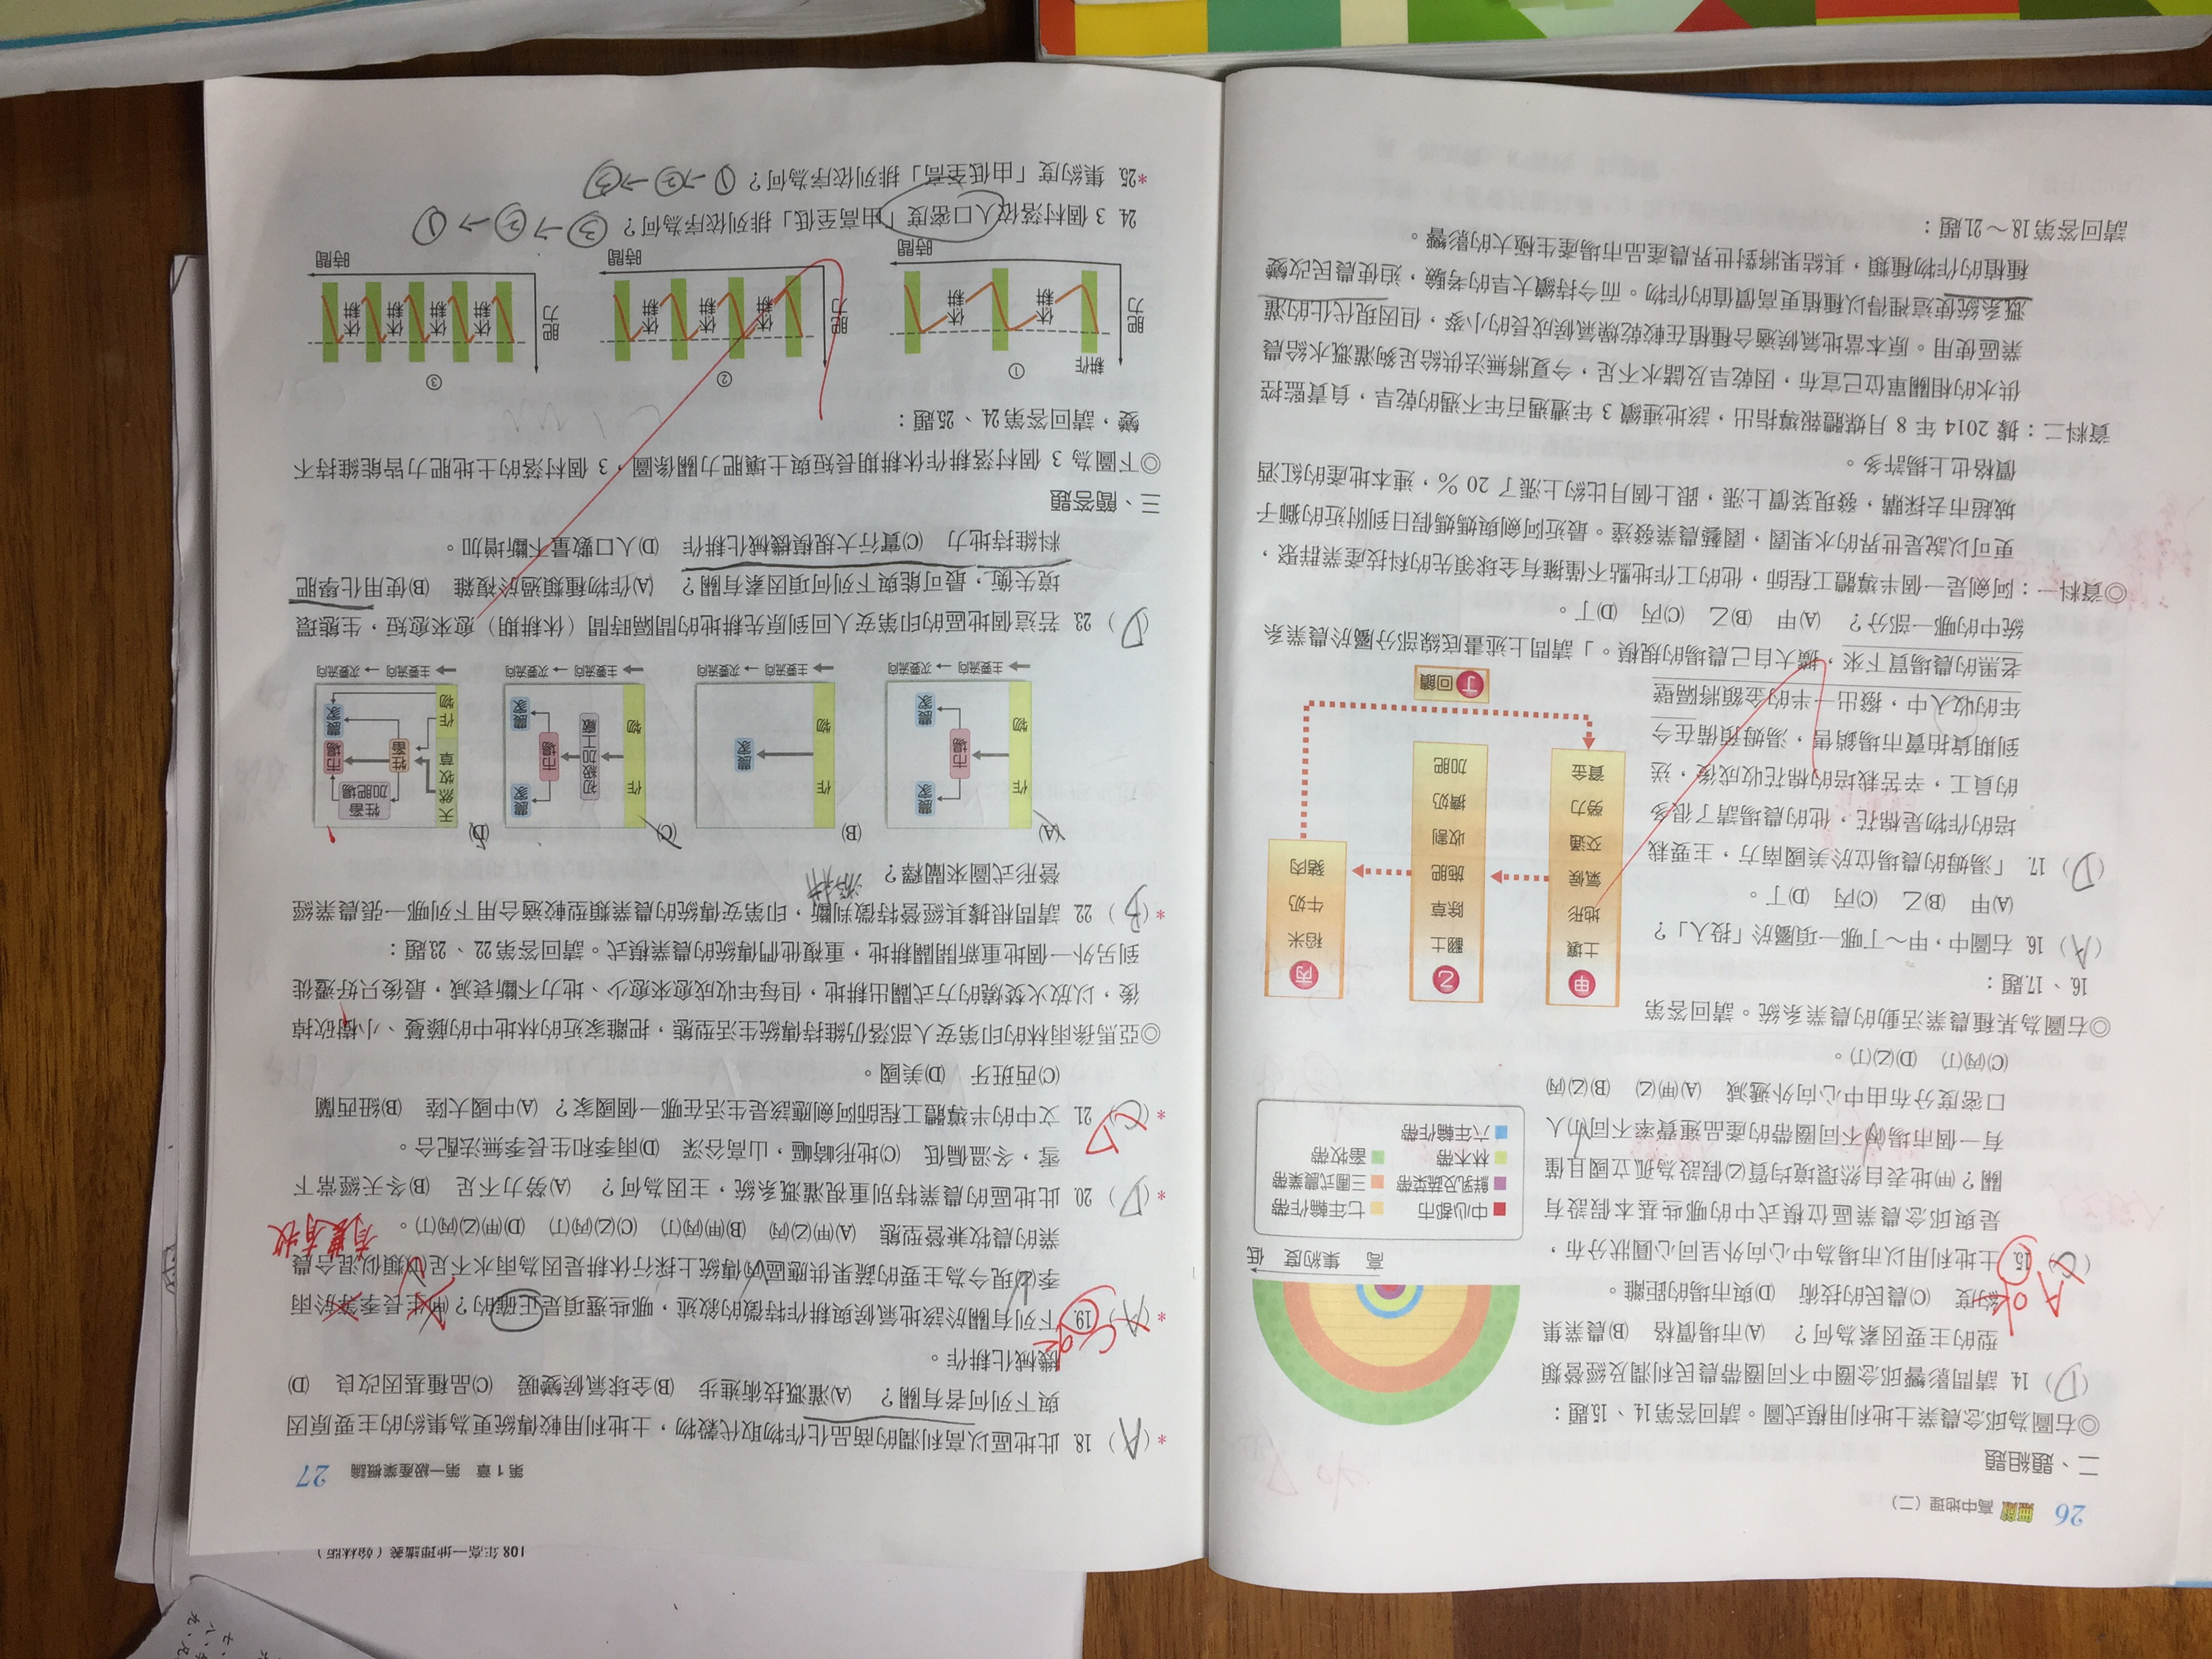 26 無敵 高中地理（二）
二、題組題
◎右圖為邱念農業土地利用模式圖。請回答第14、15題：
（D）14. 請問影響邱念圈中不同圈帶農民利潤及經營類
型的主要因素為何？ (A)市場價格 (B)農業集
約度 (C)農民的技術 (D)與市場的距離。
（C）15. 土地利用以市場為中心向外呈同心圓狀分布，
A OK
是與邱念農業區位模式中的哪些基本假設有
關？(甲)地表自然環境均質(乙)假設為孤立國且僅
有一個市場(丙)不同圈帶的產品運費率不同(丁)人
口密度分布由中心向外遞減 (A)(甲)(乙) (B)(乙)(丙)
(C)(丙)(丁) (D)(乙)(丁)。
高 集約度 低
中心都市
鮮乳及蔬菜帶
林木帶
六年輪作帶
七年輪作帶
三圃式農業帶
畜牧帶
◎右圖為某種農業活動的農業系統。請回答第
16、17題：
（A）16. 右圖中，甲～丁哪一項屬於「投入」？
(A)甲 (B)乙 (C)丙 (D)丁。
（D）17. 「湯姆的農場位於美國南方，主要栽
培的作物是棉花，他的農場請了很多
的員工，辛苦栽培的棉花收成後，送
到期貨拍賣市場銷售，湯姆預備在今
年的收入中，撥出一半的金額將隔壁
老黑的農場買下來，擴大自己農場的規模。」請問上述畫底線部分屬於農業系
統中的哪一部分？ (A)甲 (B)乙 (C)丙 (D)丁。
甲 土壤 地形 氣候 交通 勞力 資金
乙 翻土 除草 施肥 收割 擠奶 加肥
丙 稻米 牛奶 豬肉
丁 回饋
◎資料一：阿劍是一個半導體工程師，他的工作地點不僅擁有全球領先的科技產業群聚，
更可以說是世界的水果園，園藝農業發達。最近阿劍與媽媽假日到附近的獅子
城超市去採購，發現菜價上漲，跟上個月比約上漲了 20 %，連本地產的紅酒
價格也上揚許多。
資料二：據 2014 年 8 月媒體報導指出，該地連續 3 年遭遇百年不遇的乾旱，負責監控
供水的相關單位已宣布，因乾旱及儲水不足，今夏將無法供給足夠灌溉水給農
業區使用。原本當地氣候適合種植在較乾燥氣候成長的小麥，但因現代化的灌
溉系統使這裡得以種植更高價值的作物。而今持續大旱的考驗，迫使農民改變
種植的作物種類，其結果將對世界農產品市場產生極大的影響。
請回答第18～21題：
第 1 章 第一級產業概論 27
*（A）18. 此地區以高利潤的商品化作物取代穀物，土地利用較傳統更為集約的主要原因
與下列何者有關？ (A)灌溉技術進步 (B)全球氣候變暖 (C)品種基因改良 (D)
機械化耕作。
*（A）19. 下列有關於該地氣候與耕作特徵的敘述，哪些選項是正確的？(甲)生長季等於雨
C OK
季(乙)現今為主要的蔬果供應區(丙)傳統上採行休耕是因為雨水不足(丁)類似混合農
業的農牧兼營型態 (A)(甲)(乙)(丙) (B)(甲)(丙)(丁) (C)(乙)(丙)(丁) (D)(甲)(乙)(丙)(丁)。
有農有牧
*（D）20. 此地區的農業特別重視灌溉系統，主因為何？ (A)勞力不足 (B)冬天經常下
雪，冬溫偏低 (C)地形崎嶇，山高谷深 (D)雨季和生長季無法配合。
*（C）21. 文中的半導體工程師阿劍應該是生活在哪一個國家？ (A)中國大陸 (B)紐西蘭
D
(C)西班牙 (D)美國。
◎亞馬孫雨林的印第安人部落仍維持傳統生活型態，把離家近的林地中的藤蔓、小樹砍掉
後，以放火焚燒的方式闢出耕地，但每年收成愈來愈少、地力不斷衰減，最後只好遷徙
到另外一個地重新開闢耕地，重複他們傳統的農業模式。請回答第22、23題：
*（B）22. 請問根據其經營特徵判斷，印第安傳統的農業類型較適合用下列哪一張農業經
營形式圖來闡釋？ 游耕
(A) 作物 市場 農家 農家 主要流向 次要流向
(B) 作物 農家 主要流向 次要流向
(C) 作物 初級加工廠 市場 農家 農家 主要流向 次要流向
(D) 天然牧草 作物 牲畜加肥場 牲畜 市場 農家 主要流向 次要流向
（D）23. 若這個地區的印第安人回到原先耕地的間隔時間（休耕期）愈來愈短，生態環
境失衡，最可能與下列何項因素有關？ (A)作物種類過於複雜 (B)使用化學肥
料維持地力 (C)實行大規模機械化耕作 (D)人口數量不斷增加。
三、簡答題
◎下圖為 3 個村落耕作休耕期長短與土壤肥力關係圖，3 個村落的土地肥力皆能維持不
變，請回答第24、25題：
① 肥力 耕作 休耕 休耕 時間
② 肥力 休耕 休耕 休耕 時間
③ 肥力 休耕 休耕 休耕 休耕 時間
24. 3 個村落依人口密度「由高至低」排列依序為何？ ③→②→①
*25. 集約度「由低至高」排列依序為何？ ①→②→③
108 年高一地理講義（翰林版）